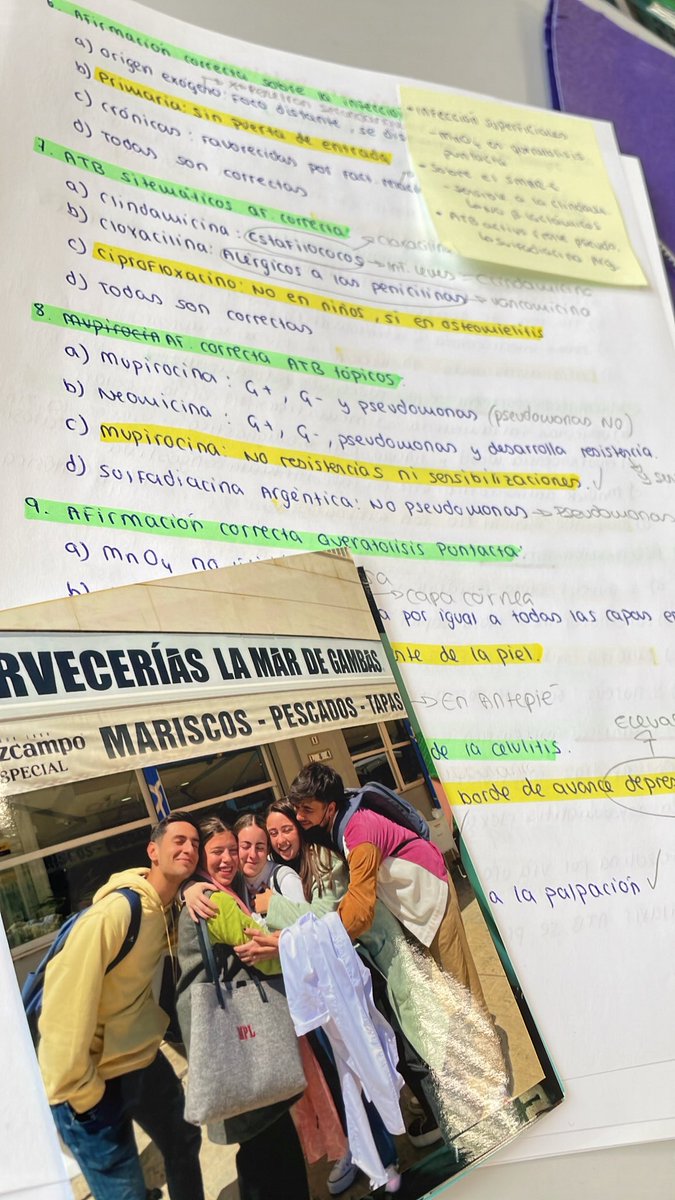 6. Afirmación correcta sobre la
a) origen exógeno: Foco distante, se
b) Primaria: sin puerta de entrada
c) crónicas: Favorecidas por Fact.
d) Todas son correctas
7. ATB sitemáticos af. correcta
a) clindamicina: Estafilococos
b) cloxacilina: Alérgicos a las penicilinas → inf. leves → clindamicina
→ vancomicina
c) ciprofloxacino: No en niños, si en osteomielitis
d) Todas son correctas
8. Mupirocin Af. correcta ATB tópicos
a) mupirocina: G+, G- y pseudomonas (pseudomonas NO)
b) Neomicina: G+, G-, pseudomonas y desarrolla resistencia.
c) mupirocina: No resistencias ni sensibilizaciones. ✓
d) Sulfadiacina Argéntica: No pseudomonas → pseudomonas
9. Afirmación correcta queratolisis pontacta
a) MnO4 no
→ capa córnea
a por igual a todas las capas
nte de la piel.
→ En Antepié
de la celulitis.
borde de avance depres
a la palpación ✓
• Infección superficiales
- MnO4 en queratolisis
puntacta
• Sobre el SMAR-t
sensible a la clindam.
• ATB activo frente pseudo.
la sulfadiacina Arg.
RVECERÍAS LA MAR DE GAMBAS
zcampo
SPECIAL
MARISCOS - PESCADOS - TAPAS
MPL